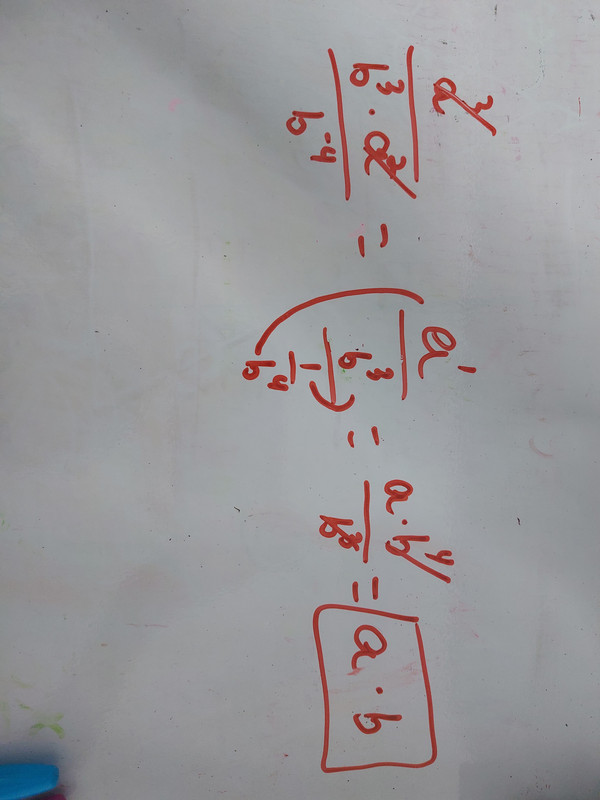 \frac{a^3}{\frac{b^3 \cdot a^2}{b^{-4}}} = \frac{a^1}{\frac{b^3}{\frac{1}{b^4}}} = \frac{a \cdot b^4}{b^3} = a \cdot b